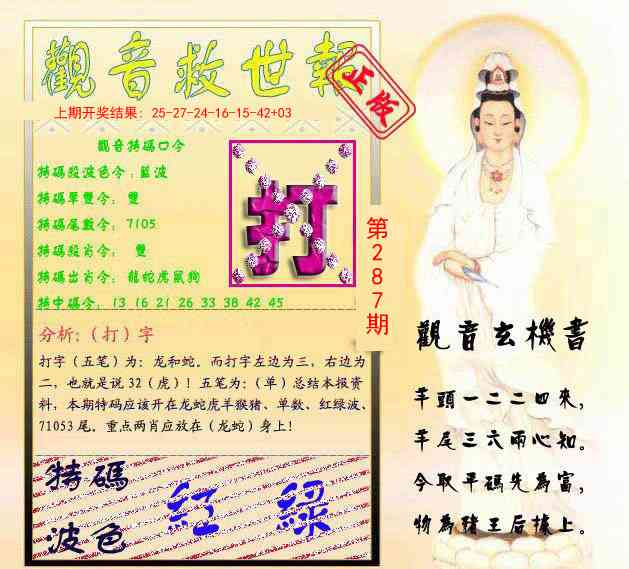 觀音救世報
正版
上期开奖结果：25-27-24-16-15-42+03
觀音特碼口令
特碼段波色令：藍波
特碼單雙令： 雙
特碼尾數令： 7105
特碼段肖令： 雙
特碼出肖令： 龍蛇虎鼠狗
特中碼令： 13 16 21 26 33 38 42 45
打
第287期
分析：（打）字
打字（五笔）为：龙和蛇。而打字左边为三，右边为
二，也就是说 32（虎）！五笔为：（单）总结本报资
料，本期特码应该开在龙蛇虎羊猴猪、单数、红绿波、
71053 尾。重点两肖应放在（龙蛇）身上！
特碼
波色
紅 綠
觀音玄機書
羊頭一二二四來，
羊尾三六兩心知。
今取平碼先為富，
物為豬王后據上。